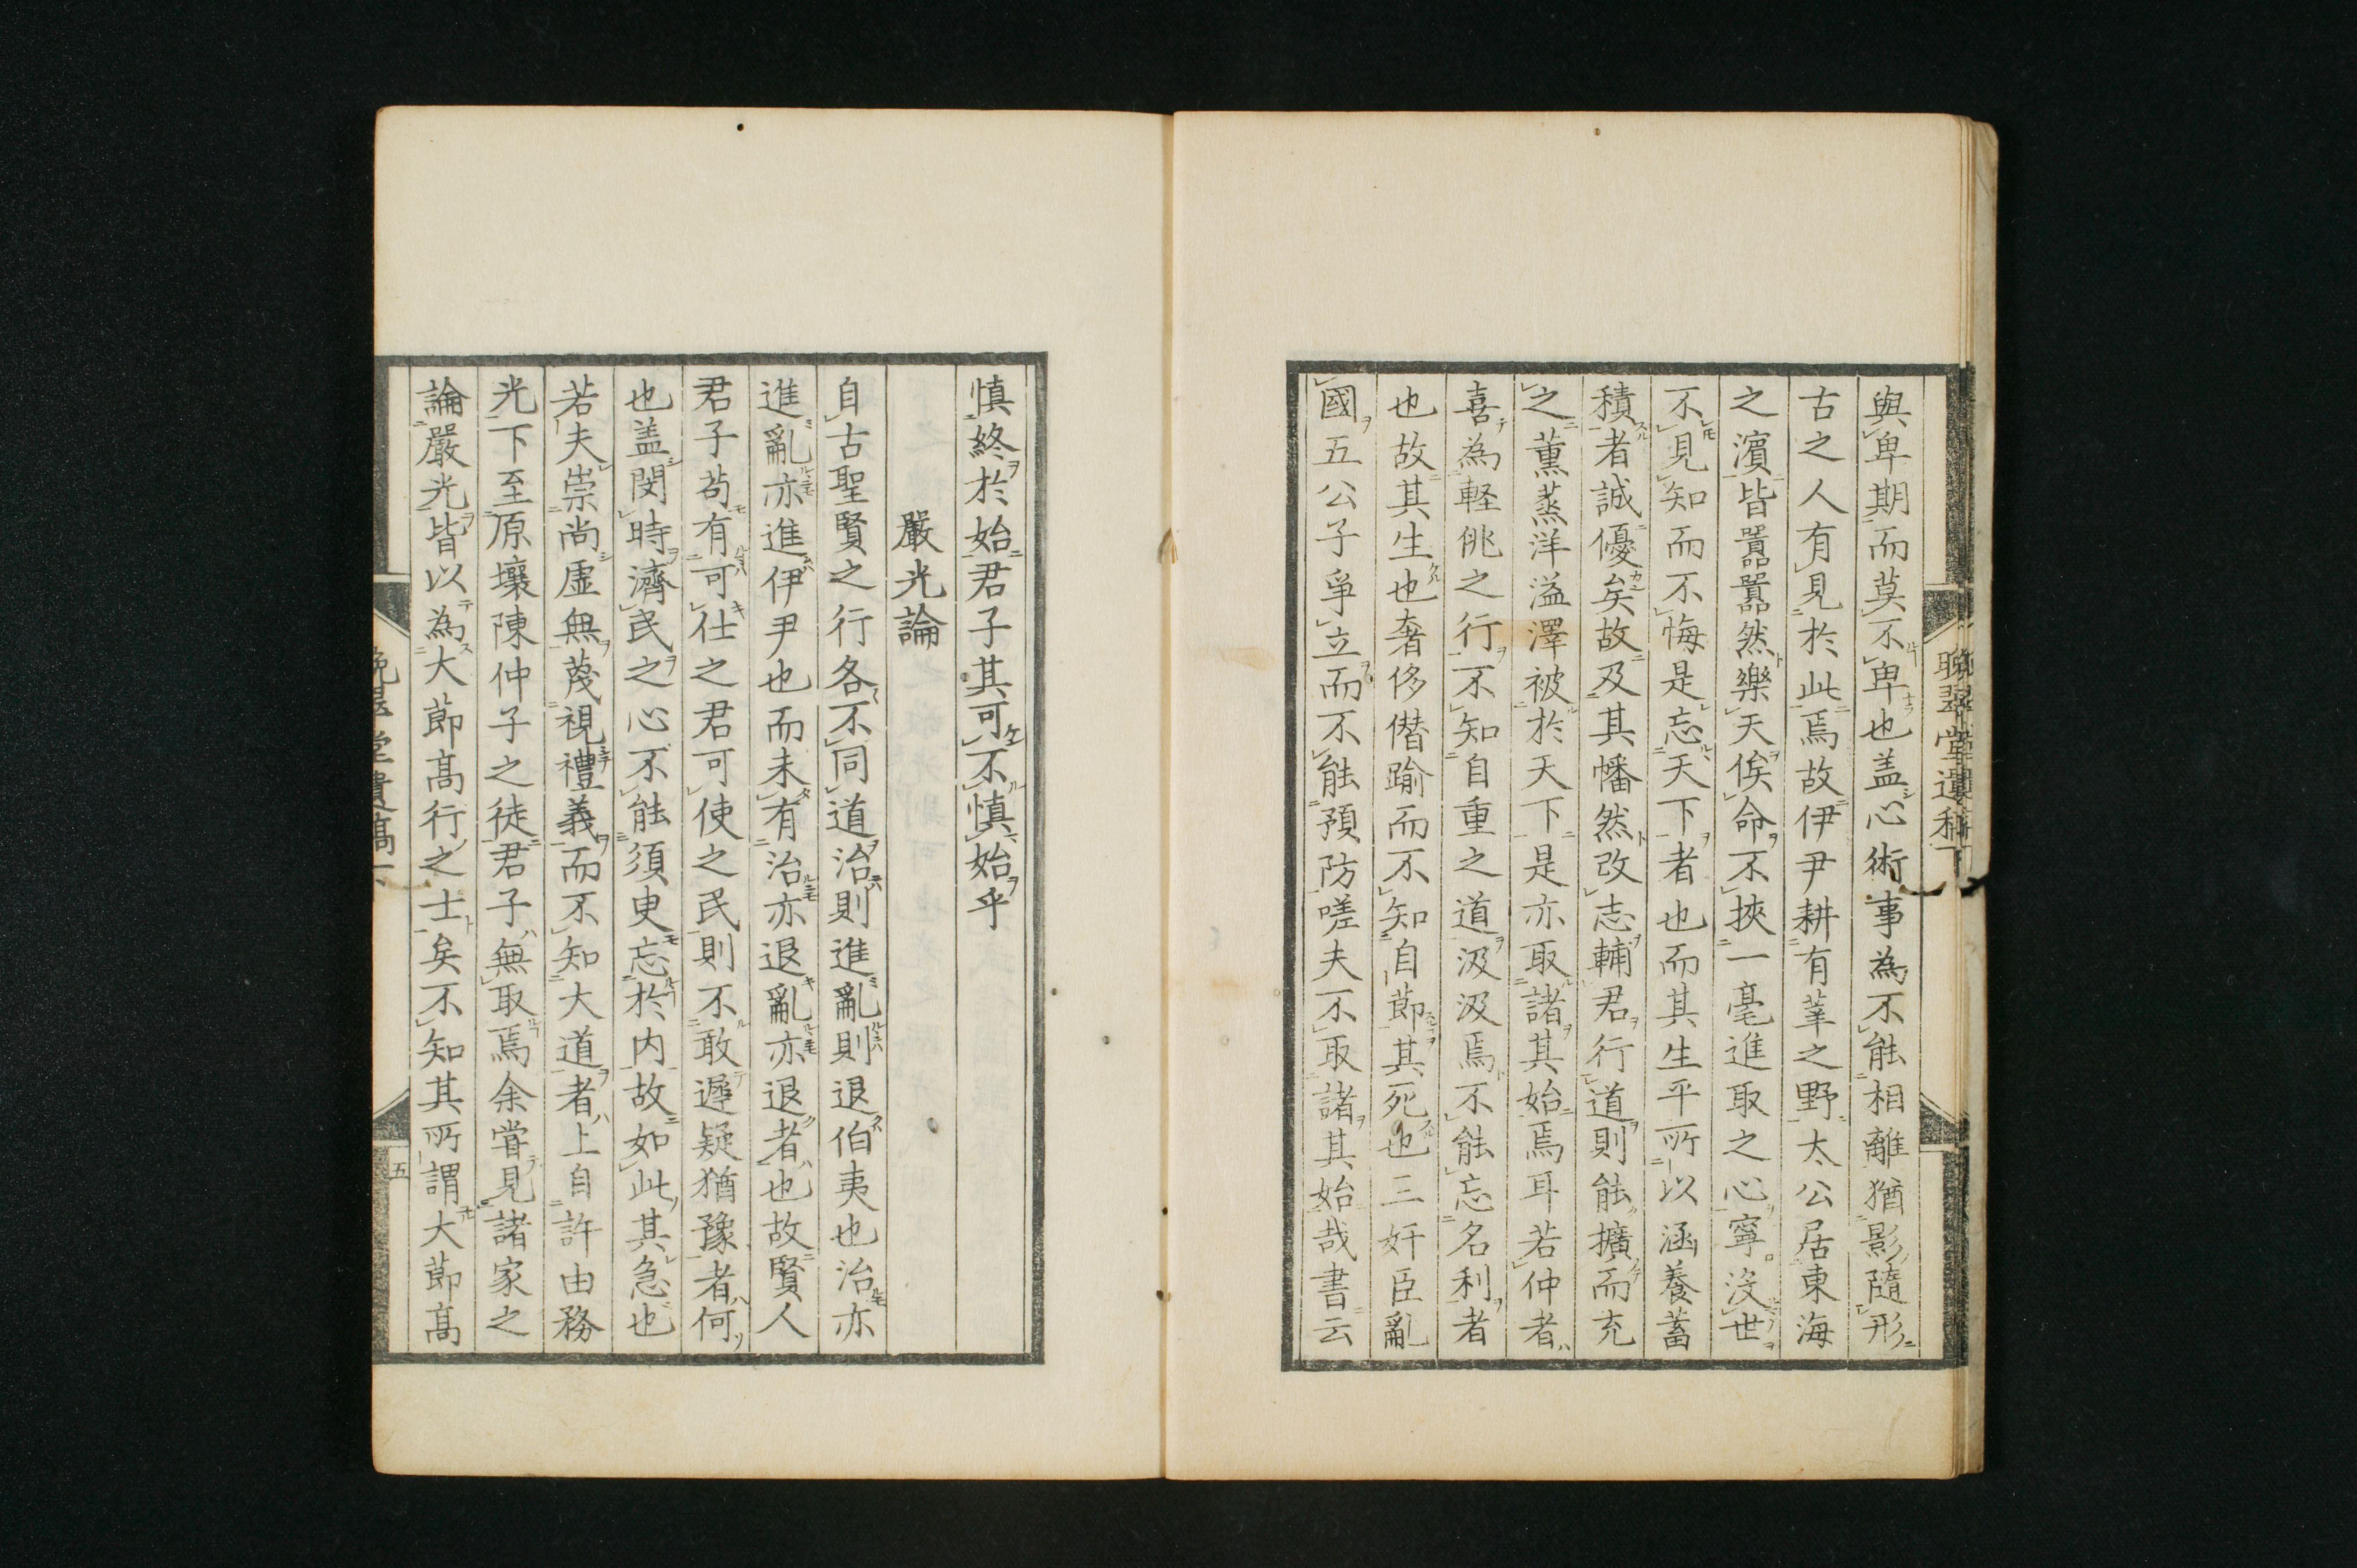 晩翠堂遺稿
與卑期而莫不卑也盖心術事為不能相離猶影隨形
古之人有見於此焉故伊尹耕有莘之野太公居東海
之濱皆囂囂然樂天俟命不挾一毫進取之心寧没世
不見知而不悔是忘天下者也而其生平所以涵養蓄
積者誠優矣故及其幡然改志輔君行道則能擴而充
之薫蒸洋溢澤被於天下是亦取諸其始焉耳若仲者
喜為軽佻之行不知自重之道汲汲焉不能忘名利者
也故其生也奢侈僭踰而不知自節其死也三奸臣亂
國五公子爭立而不能預防嗟夫不取諸其始哉書云
慎終於始君子其可不慎始乎
嚴光論
自古聖賢之行各不同道治則進亂則退伯夷也治亦
進亂亦進伊尹也而未有治亦退亂亦退者也故賢人
君子苟有可仕之君可使之民則不敢遲疑猶豫者何
也盖閔時濟民之心不能須臾忘於内故如此其急也
若夫崇尚虚無蔑視禮義而不知大道者上自許由務
光下至原壤陳仲子之徒君子無取焉余甞見諸家之
論嚴光皆以為大節髙行之士矣不知其所謂大節髙
晩翠堂遺稿
五